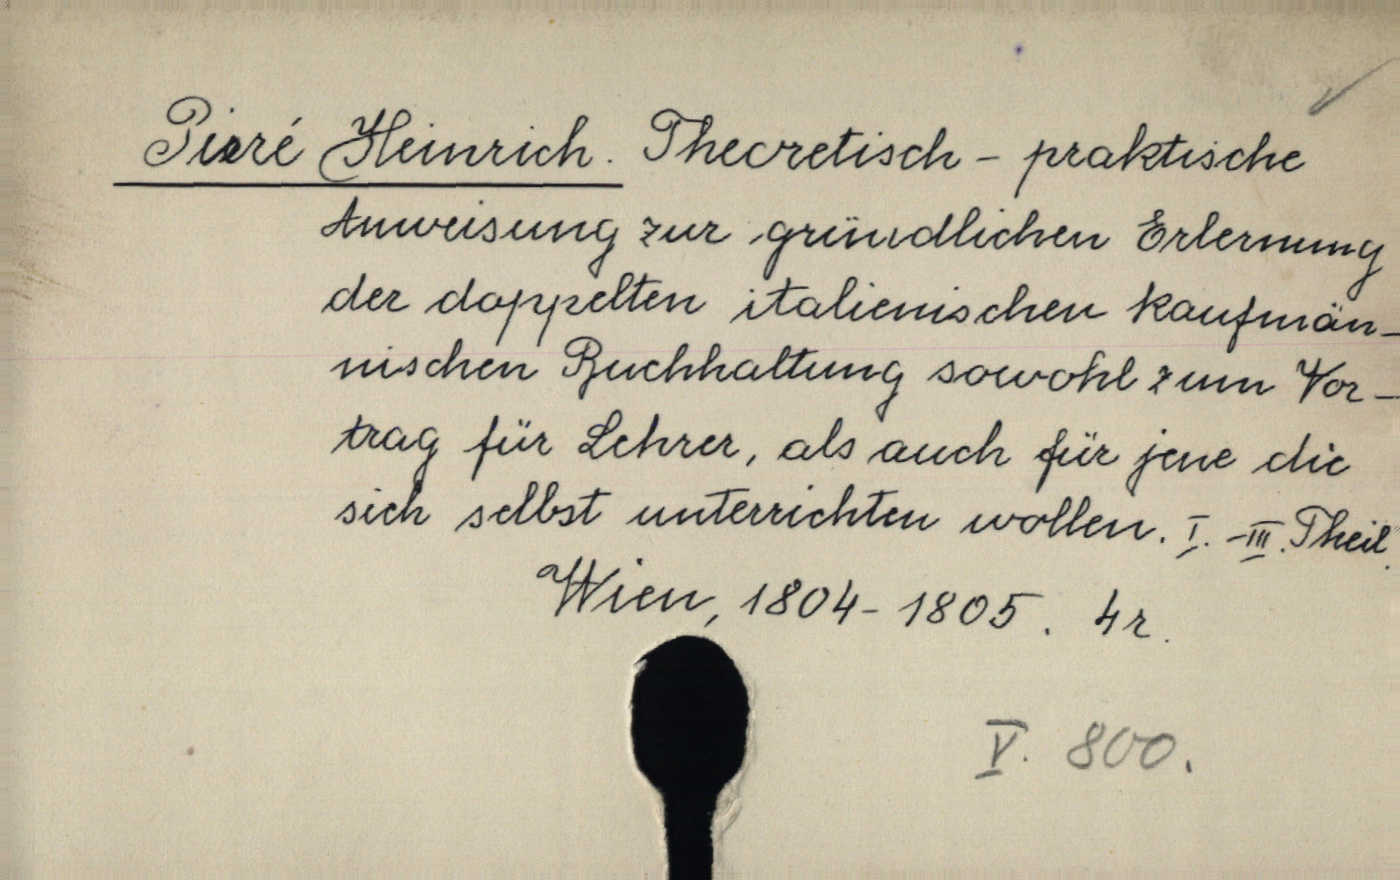 Pierré Heinrich. Theoretisch - praktische
Anweisung zur gründlichen Erlernung
der doppelten italienischen kaufmän-
nischen Buchhaltung sowohl zum Vor-
trag für Lehrer, als auch für jene die
sich selbst unterrichten wollen. I.-III. Theil.
Wien, 1804-1805. 4r.
V. 800.